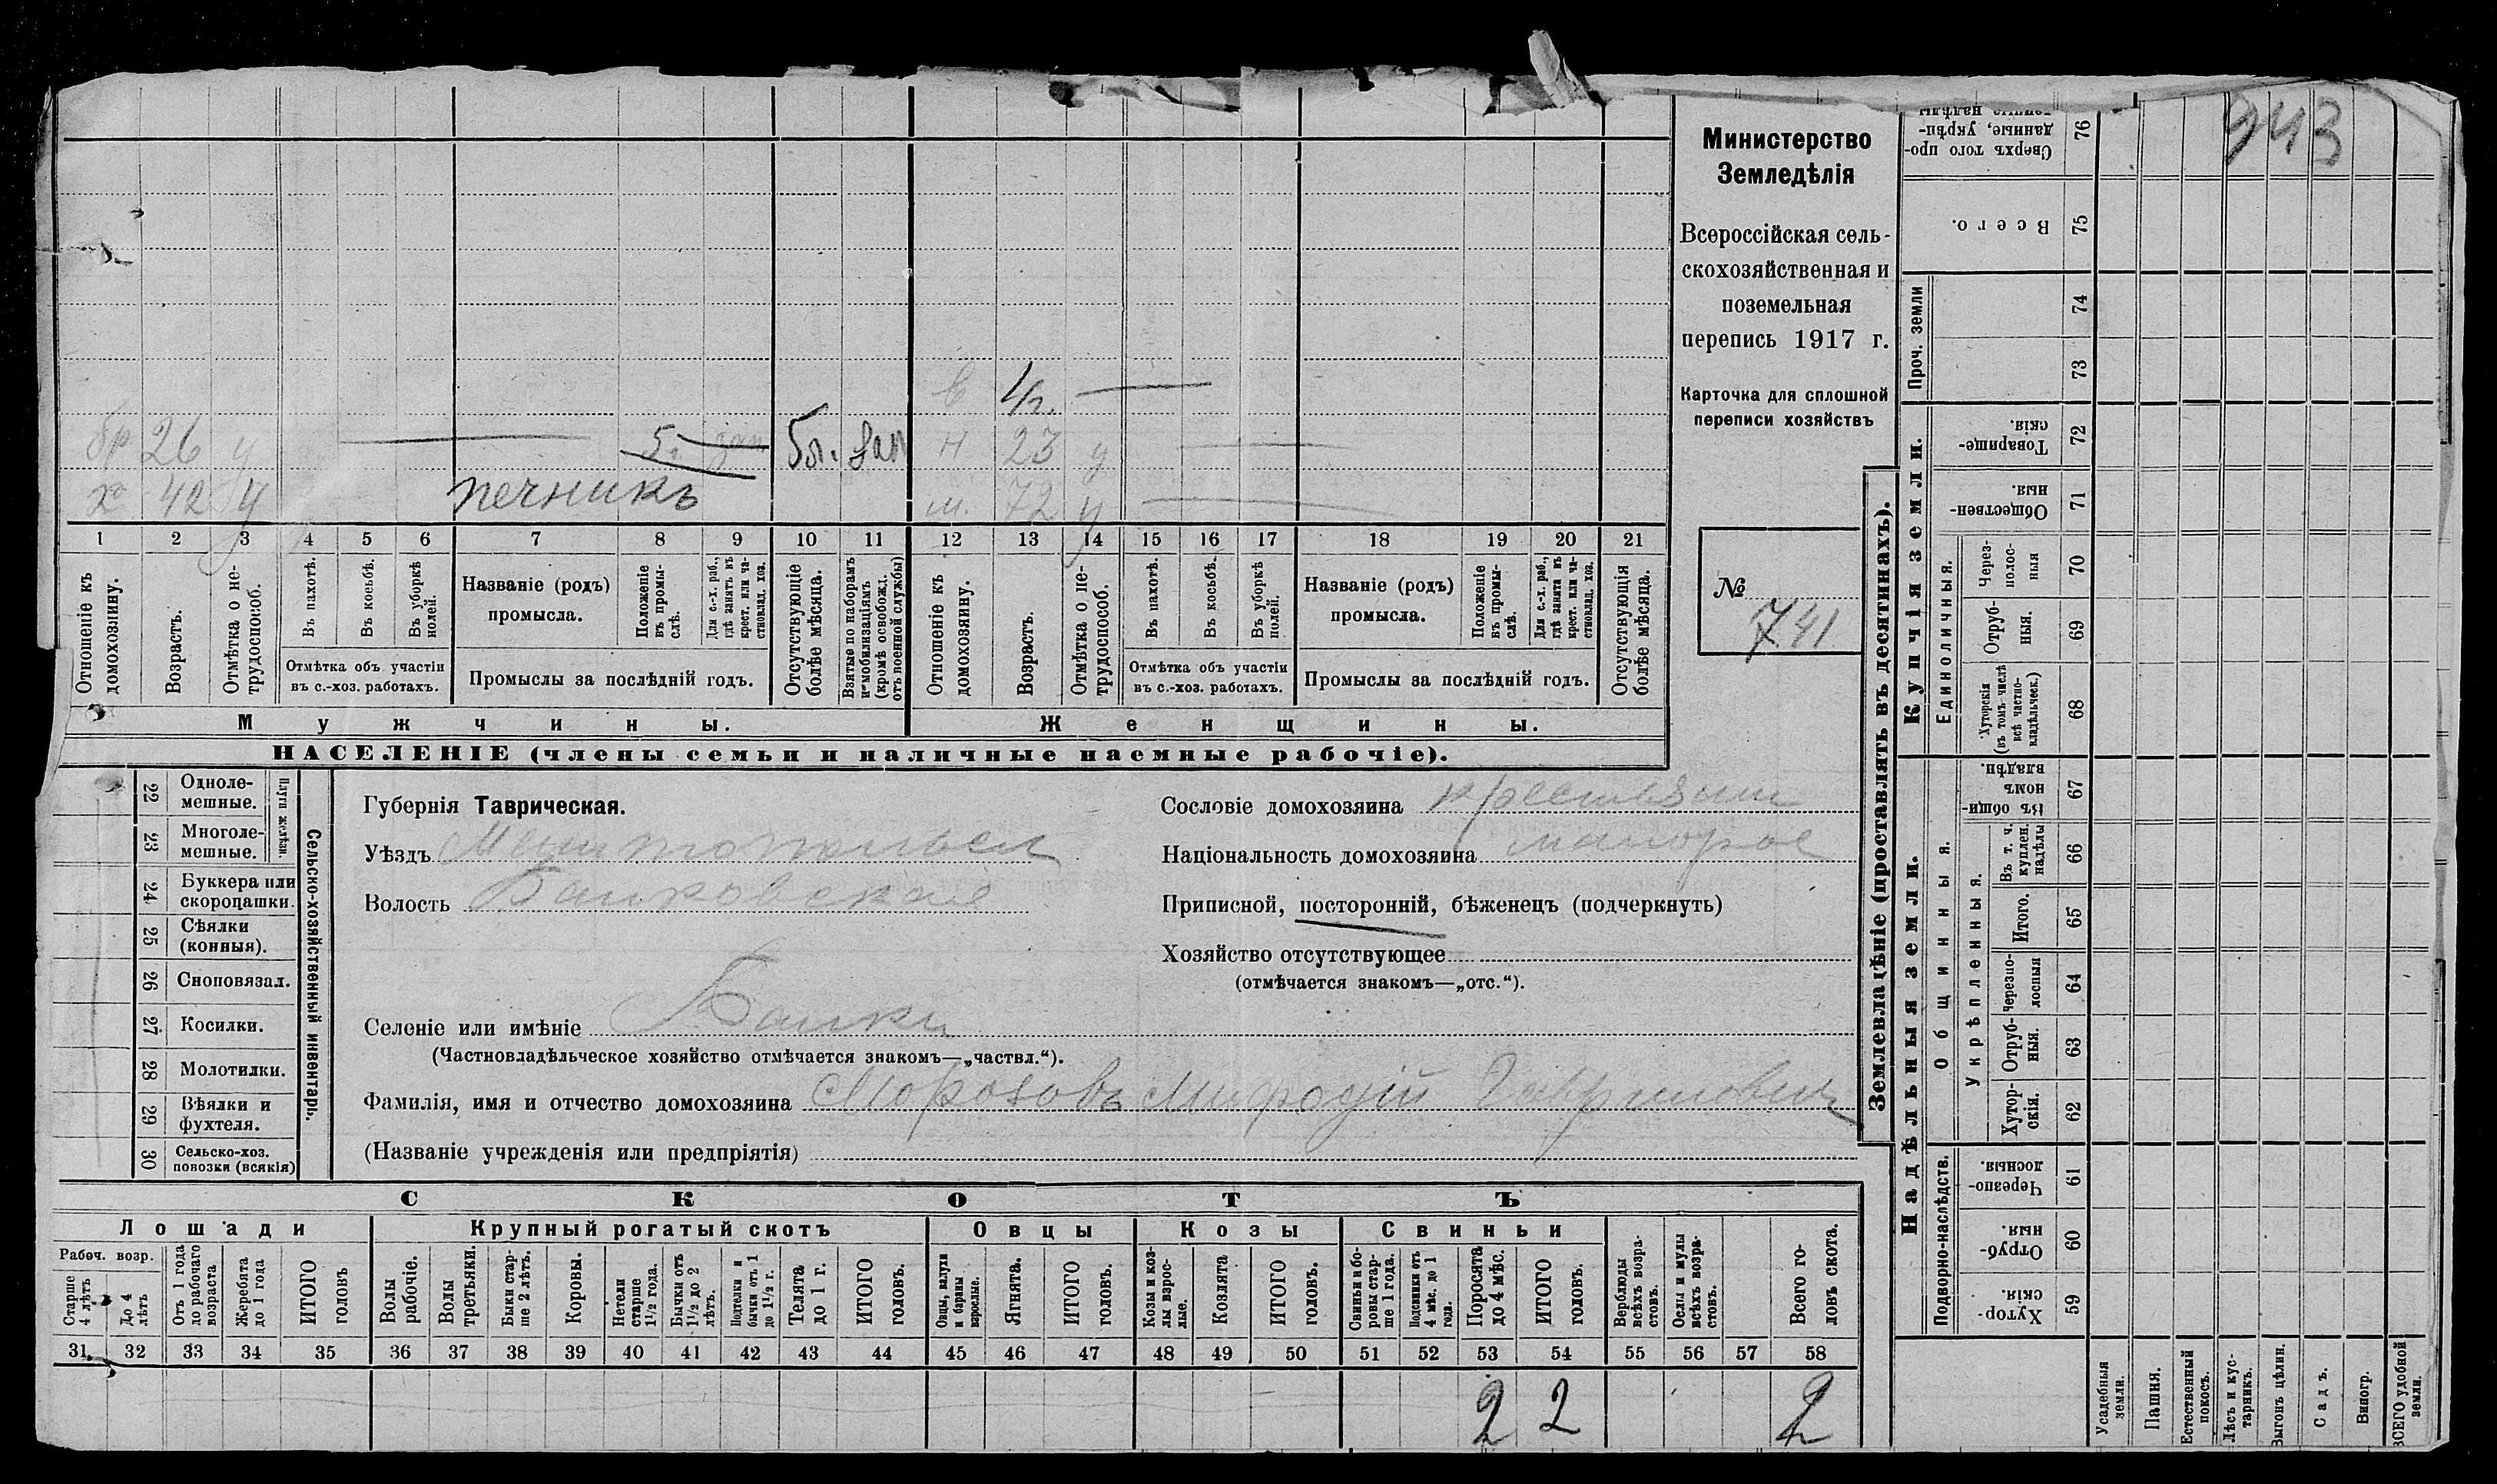 943
Министерство
Земледѣлія
Всероссійская сель-
скохозяйственная и
поземельная
перепись 1917 г.
Карточка для сплошной
переписи хозяйствъ
№
741
4 г.
бр 26 у 5. зап 5л. зап н 23 у
х 42 у печникъ м. 72 у
1 2 3 4 5 6 7 8 9 10 11 12 13 14 15 16 17 18 19 20 21
Отношеніе къ домохозяину.
Возрастъ.
Отмѣтка о не-трудоспособ.
Въ пахотѣ.
Въ косьбѣ.
Въ уборкѣ полей.
Отмѣтка объ участіи
въ с.-хоз. работахъ.
Названіе (родъ)
промысла.
Положеніе въ промы-слѣ.
Для с.-х. раб., гдѣ занятъ въ крест. или ча-стновлад. хоз.
Промыслы за послѣдній годъ.
Отсутствующіе болѣе мѣсяца.
Взятые по наборамъ и мобилизаціямъ (кромѣ освобожд. отъ военной службы)
Отношеніе къ домохозяину.
Возрастъ.
Отмѣтка о не-трудоспособ.
Въ пахотѣ.
Въ косьбѣ.
Въ уборкѣ полей.
Отмѣтка объ участіи
въ с.-хоз. работахъ.
Названіе (родъ)
промысла.
Положеніе въ промы-слѣ.
Для с.-х. раб., гдѣ занятъ въ крест. или ча-стновлад. хоз.
Промыслы за послѣдній годъ.
Отсутствующія болѣе мѣсяца.
Мужчины.
Женщины.
НАСЕЛЕНІЕ (члены семьи и наличные наемные рабочіе).
22 Одноле-мешные.
23 Многоле-мешные.
Плуги желѣзн.
24 Буккера или скоропашки.
25 Сѣялки (конныя).
26 Сноповязал.
27 Косилки.
28 Молотилки.
29 Вѣялки и фухтеля.
30 Сельско-хоз. повозки (всякія)
Сельско-хозяйственный инвентарь.
Губернія Таврическая.
Уѣздъ
Волость Балковская
Селеніе или имѣніе Балки
(Частновладѣльческое хозяйство отмѣчается знакомъ—„частвл.“).
Фамилія, имя и отчество домохозяина Морозовъ Мифодій Гаврилович
(Названіе учрежденія или предпріятія)
Сословіе домохозяина крестьянин
Національность домохозяина малорос
Приписной, посторонній, бѣженецъ (подчеркнуть)
Хозяйство отсутствующее
(отмѣчается знакомъ—„отс.“).
СКОТЪ
Лошади
Крупный рогатый скотъ
Овцы
Козы
Свиньи
Рабоч. возр.
Старше 4 лѣтъ
До 4 лѣтъ
Отъ 1 года до рабочаго возраста
Жеребята до 1 года
ИТОГО головъ
Волы рабочіе.
Волы третьяки.
Быки стар-ше 2 лѣтъ.
Коровы.
Нетели старше 1½ года.
Бычки отъ 1½ до 2 лѣтъ.
Подтелки и бычки отъ 1 до 1½ г.
Телята до 1 г.
ИТОГО головъ.
Овцы, валухи и бараны взрослые.
Ягнята.
ИТОГО головъ.
Козы и коз-лы взрос-лые.
Козлята
ИТОГО головъ.
Свиньи и бо-ровы стар-ше 1 года.
Подсвинки отъ 4 мѣс. до 1 года.
Поросята до 4 мѣс.
ИТОГО головъ.
Верблюды всѣхъ возра-стовъ.
Ослы и мулы всѣхъ возра-стовъ.
Всего го-ловъ скота.
31 32 33 34 35 36 37 38 39 40 41 42 43 44 45 46 47 48 49 50 51 52 53 54 55 56 57 58
2 2 2
Землевладѣніе (проставлять въ десятинахъ).
Надѣльныя земли.
Купчія земли.
Проч. земли
Подворно-наслѣдств.
Общинныя.
Укрѣпленныя.
Единоличныя.
Сверхъ того про-данные, укрѣп-
76
Всего. 75
74
73
Товарище-скія. 72
Обществен-ныя. 71
Через-полос-ныя 70
Отруб-ныя. 69
Хуторскія (въ томъ числѣ всѣ частно-владѣльческ.) 68
Въ общин-номъ владѣн. 67
Въ т. ч. куплен. надѣлы 66
Итого. 65
Черезпо-лосныя 64
Отруб-ныя. 63
Хутор-скія. 62
Черезпо-лосныя. 61
Отруб-ныя. 60
Хутор-скія. 59
Усадебныя земли.
Пашня.
Естественный покосъ.
Лѣсъ и кус-тарникъ.
Выгонъ цѣлин.
Садъ.
Виногр.
ВСЕГО удобной земли.